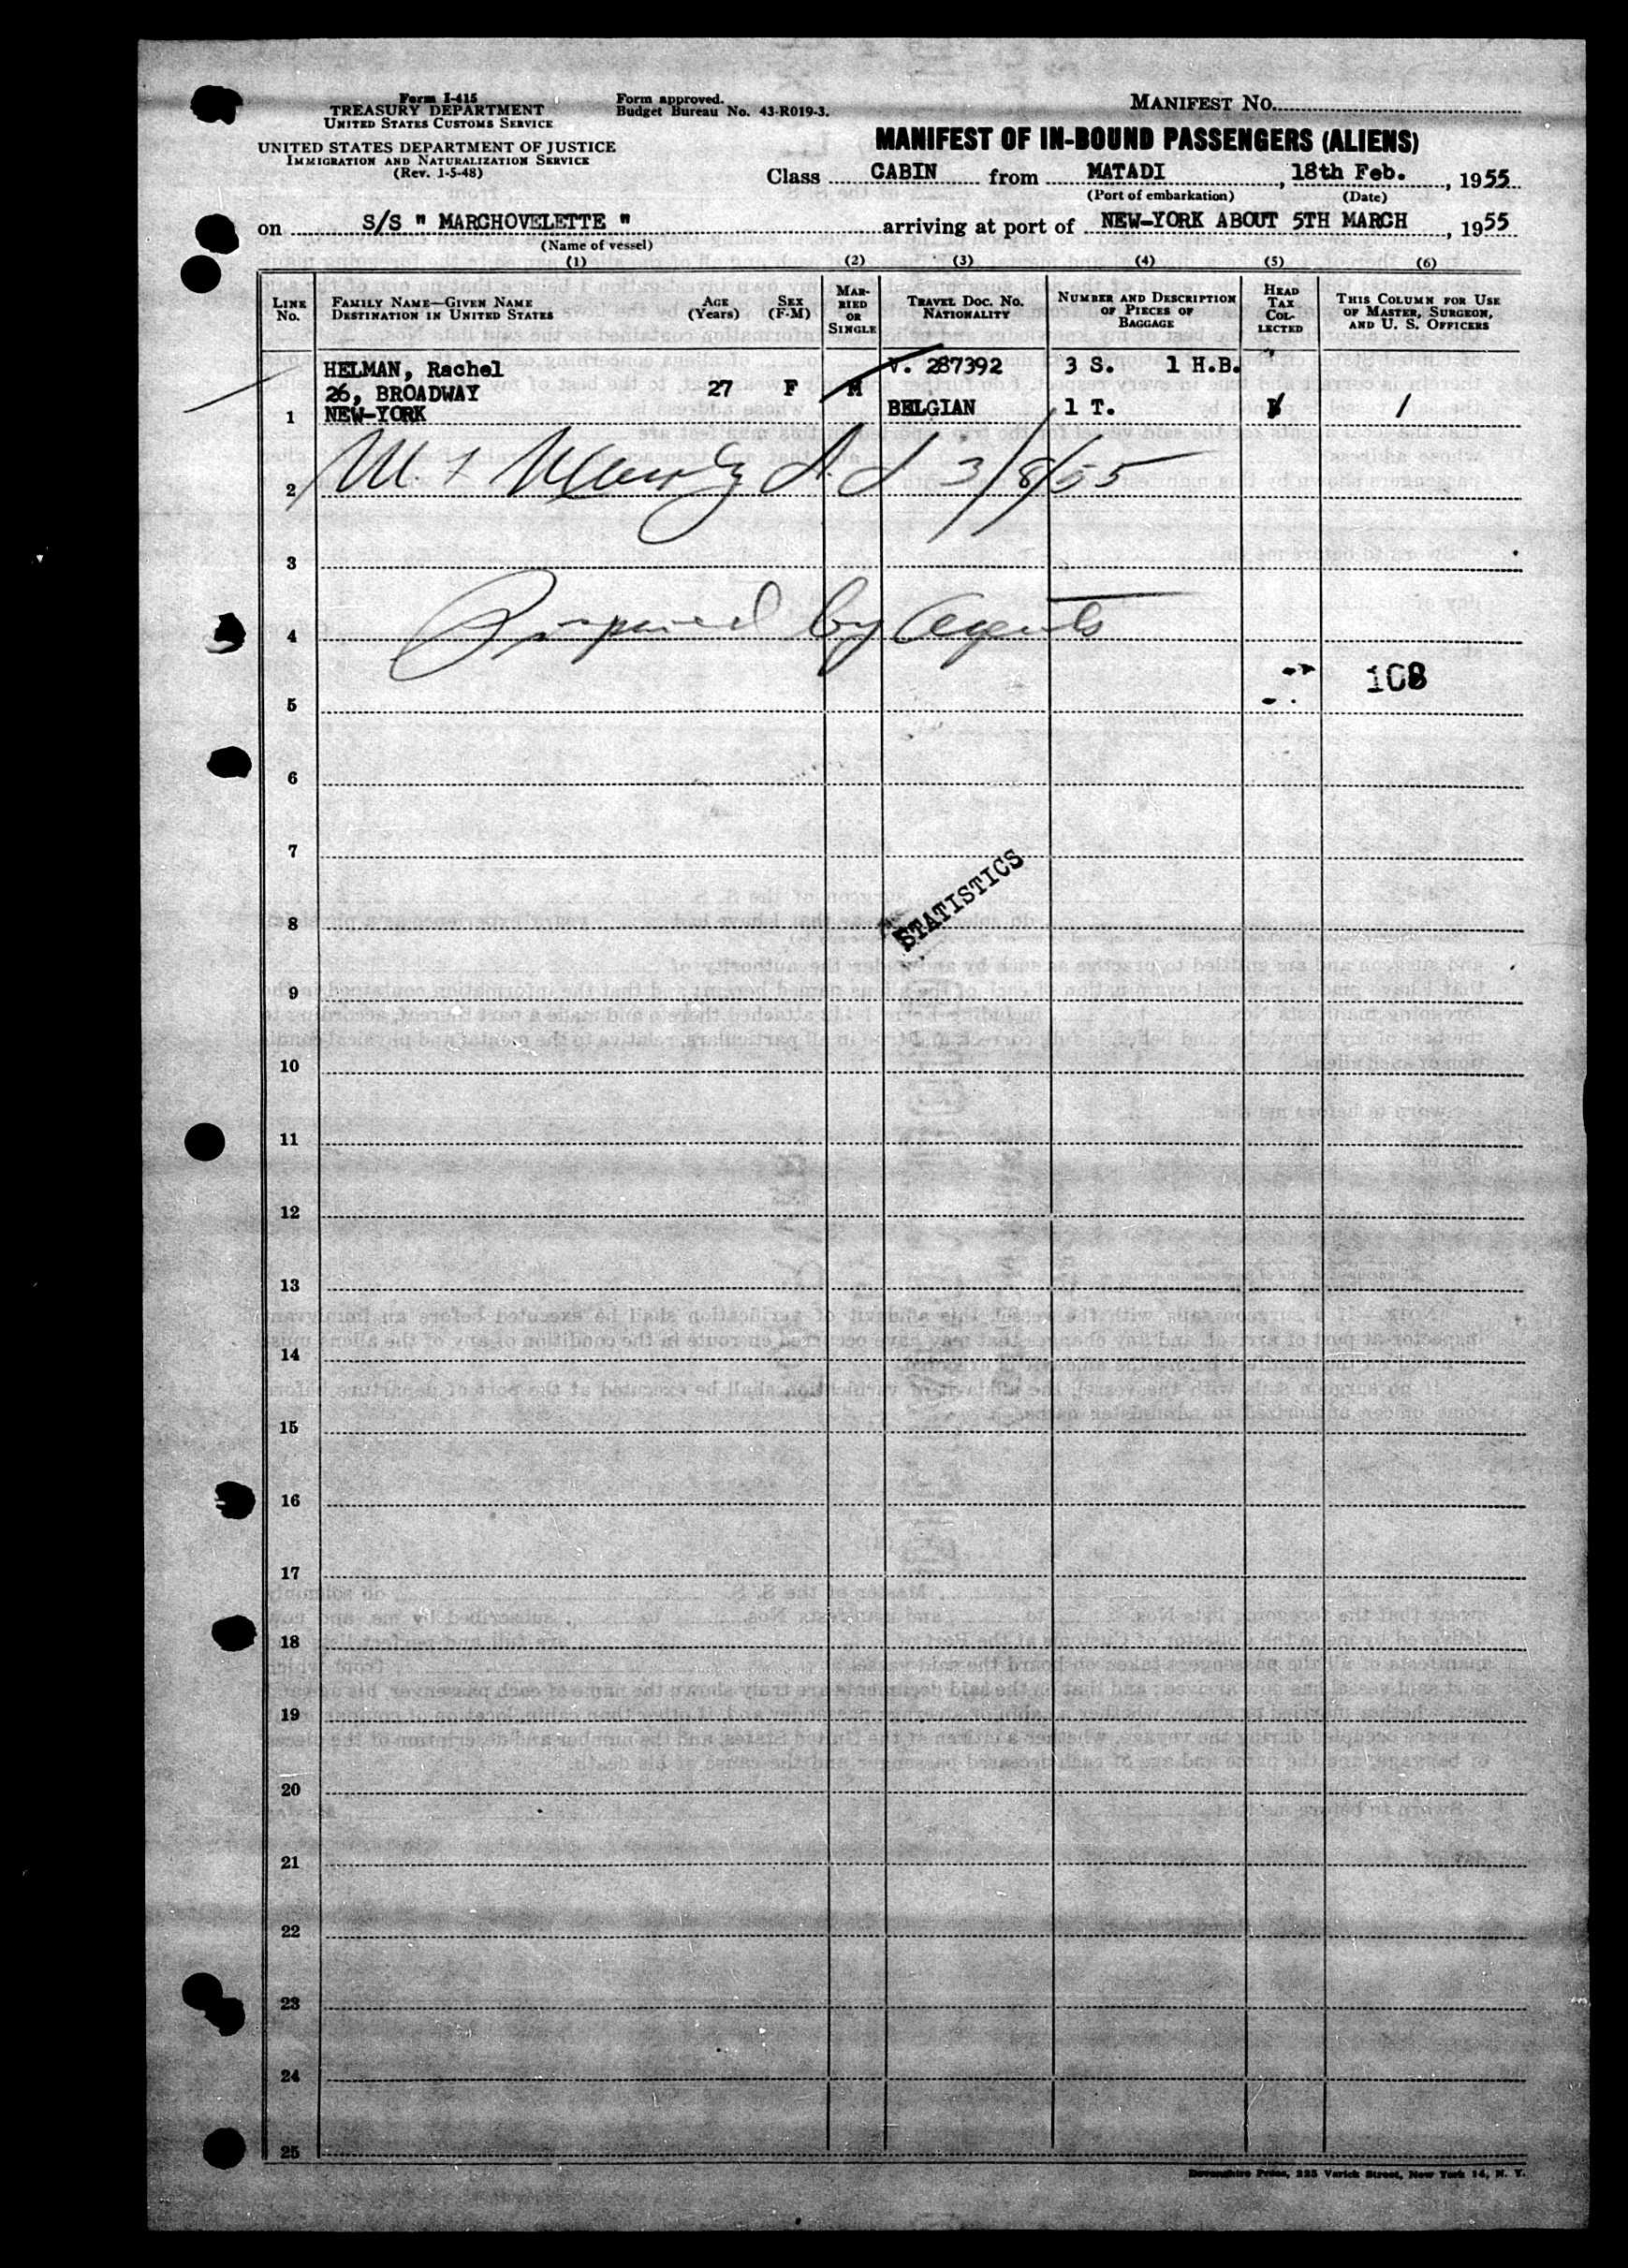 Form I-415
TREASURY DEPARTMENT
UNITED STATES CUSTOMS SERVICE
UNITED STATES DEPARTMENT OF JUSTICE
IMMIGRATION AND NATURALIZATION SERVICE
(Rev. 1-5-48)
Form approved.
Budget Bureau No. 43-R019-3.
MANIFEST NO.
MANIFEST OF IN-BOUND PASSENGERS (ALIENS)
Class CABIN from MATADI, 18th Feb., 1955
(Port of embarkation) (Date)
on S/S " MARCHOVELETTE " arriving at port of NEW-YORK ABOUT 5TH MARCH, 1955
(Name of vessel)
(1) (2) (3) (4) (5) (6)
LINE No. FAMILY NAME—GIVEN NAME DESTINATION IN UNITED STATES AGE (Years) SEX (F-M) MARRIED OR SINGLE TRAVEL DOC. NO. NATIONALITY NUMBER AND DESCRIPTION OF PIECES OF BAGGAGE HEAD TAX COLLECTED THIS COLUMN FOR USE OF MASTER, SURGEON, AND U. S. OFFICERS
HELMAN, Rachel V. 287392 3 S. 1 H.B.
26, BROADWAY 27 F M
1 NEW-YORK BELGIAN 1 T. /
2 3/8/55
3
4 Prepared by Agents
108
5
6
7
STATISTICS
8
9
10
11
12
13
14
15
16
17
18
19
20
21
22
23
24
25
Devonshire Press, 225 Varick Street, New York 14, N. Y.